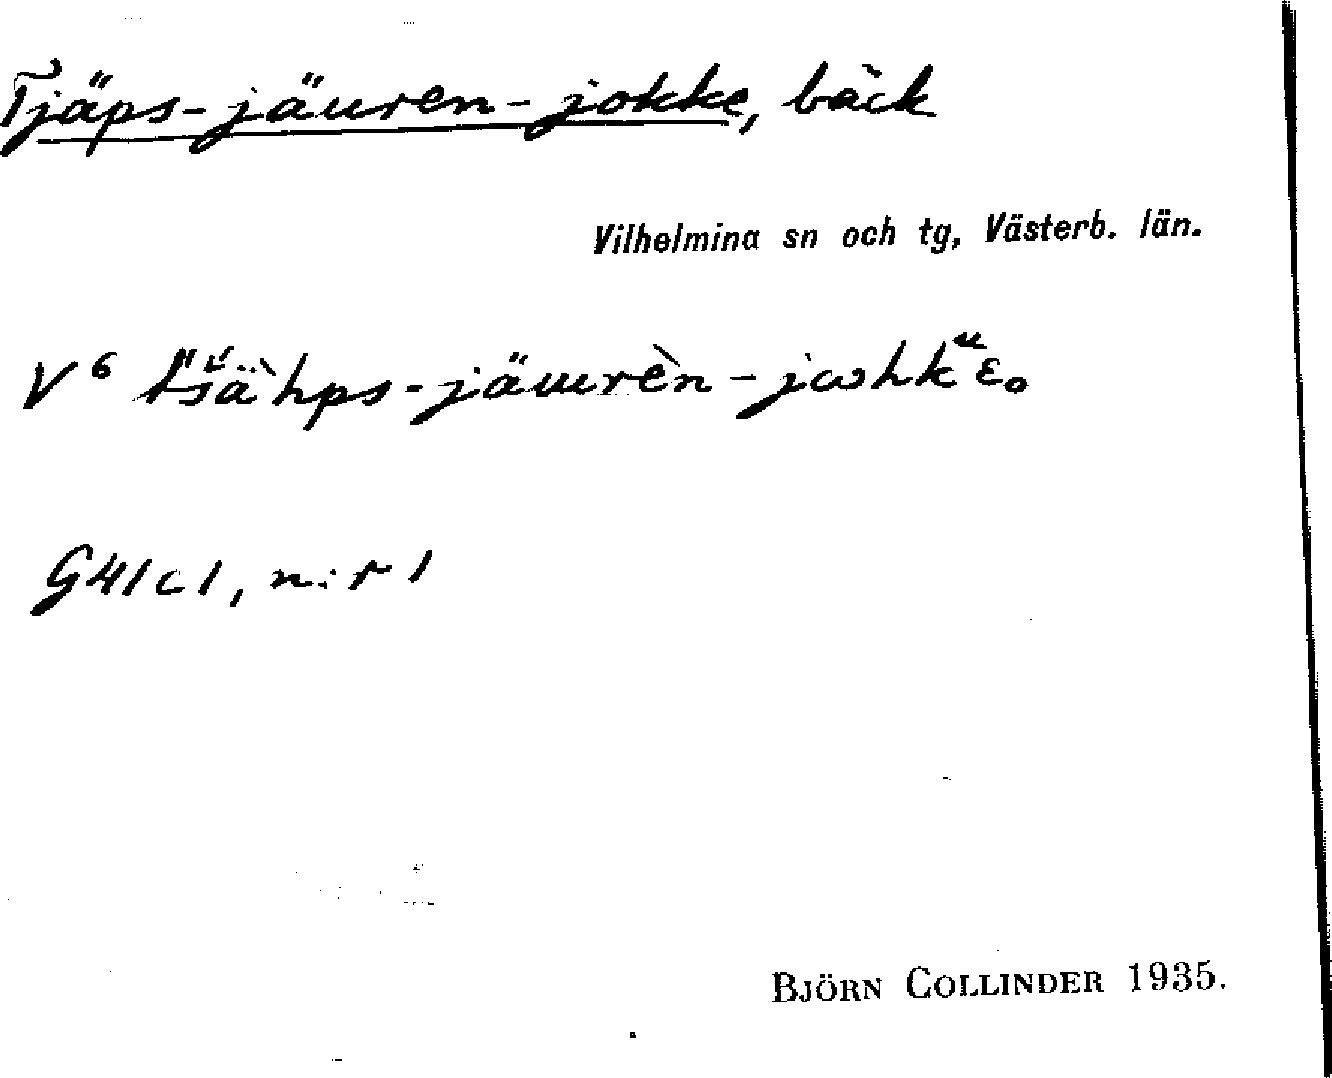 Tjäps-jäuren-jokke, bäck
Vilhelmina sn och tg, Västerb. län.
V⁶
G41c1, n:r 1
BJÖRN COLLINDER 1935.